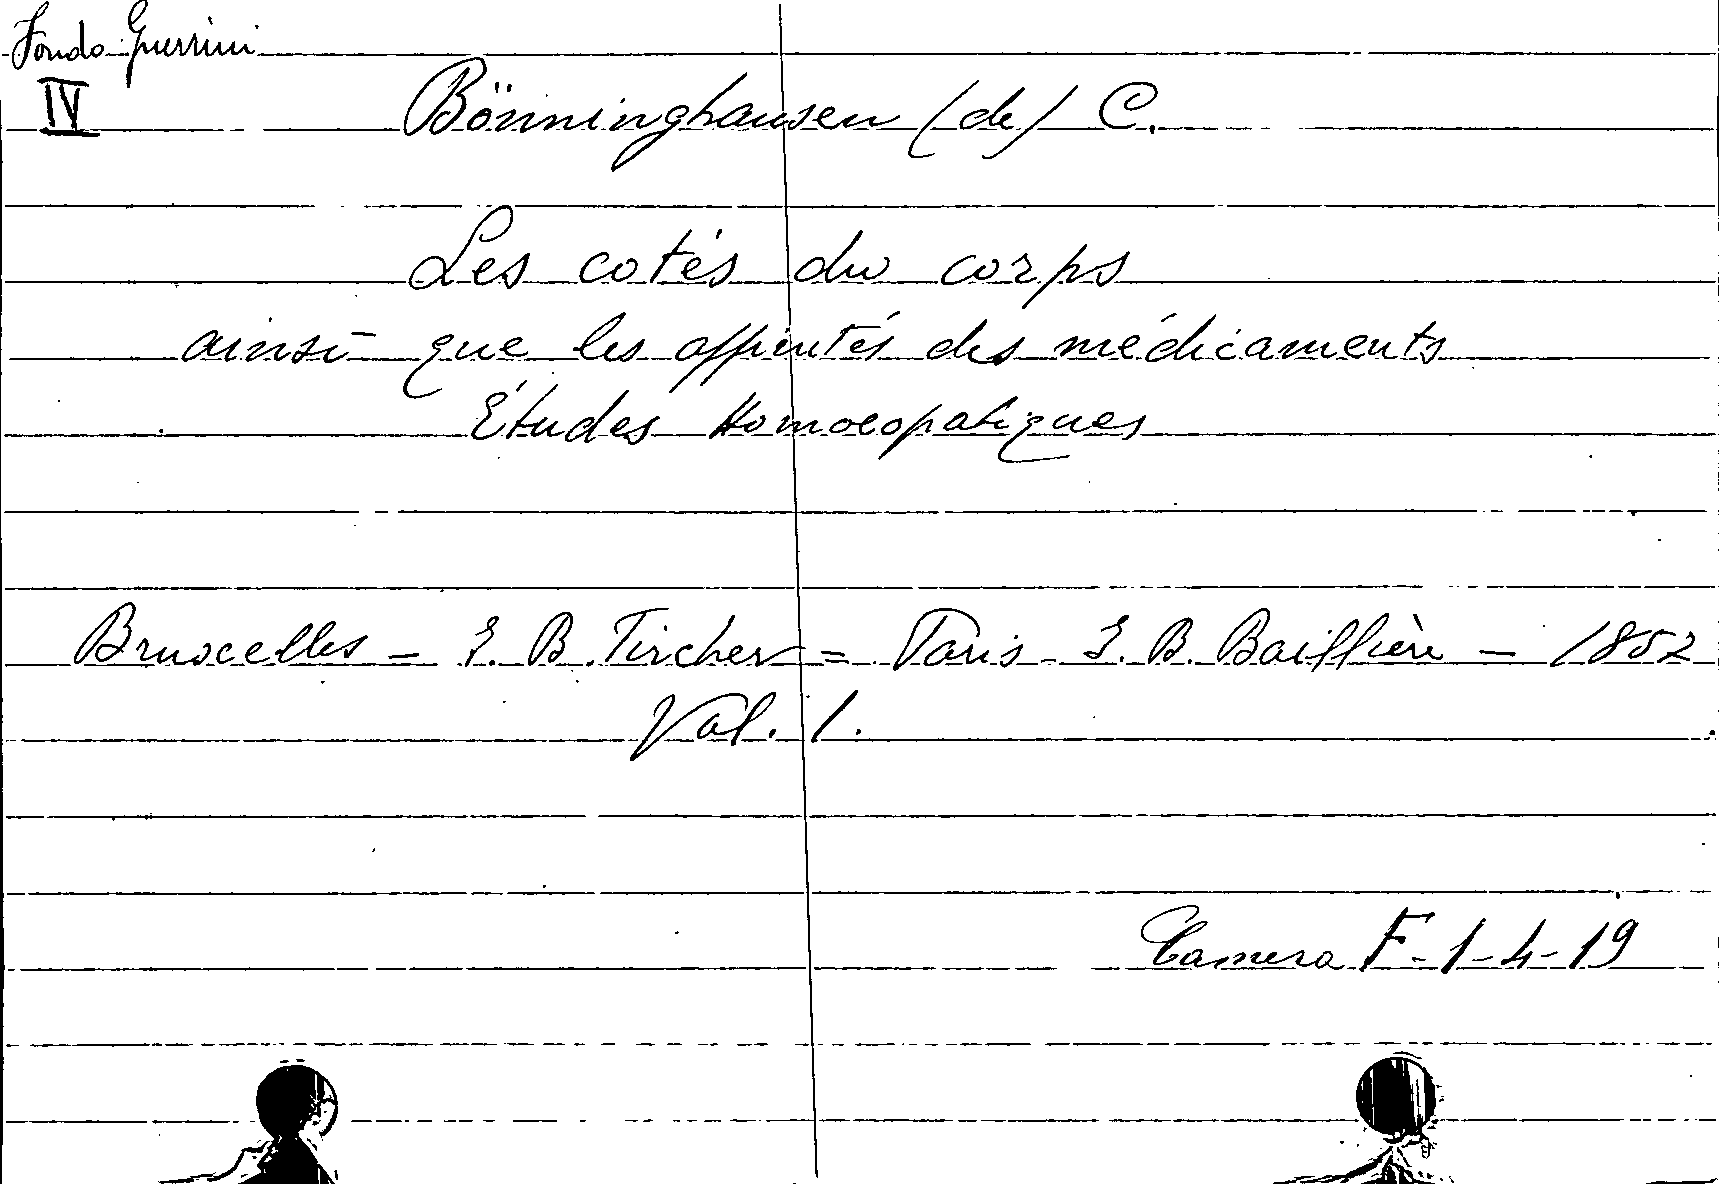 Fondo Guerrini
IV
Bönninghausen (de) C.
Les cotés du corps
ainsi que les affinités des médicaments
Études Homoeopatiques
Bruxelles - J. B. Tircher = Paris - J. B. Baillière - 1852
Vol. 1.
Camera F-1-4-19